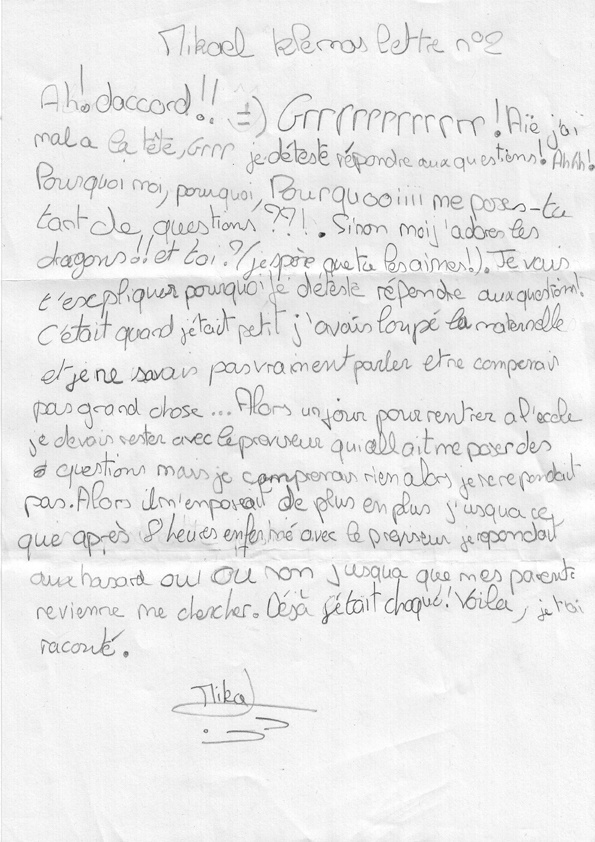 Mikael Klemos lettre n°2
Ah! daccord!! =) Grrrrrrrrrrrr! Aïe j'ai
mal a la tête, Grrr je déteste répondre aux questions! Ahhh!
Pourquoi moi, pourquoi, Pourquooiiii me poses-tu
tant de questions??!. Sinon moi j'adores les
dragons!! et toi? (j'espère que tu les aimes!). Je vais
t'escpliquer pourquoi je déteste répendre aux question!
C'était quand j'était petit j'avais loupé la maternelle
et je ne savais pas vraiment parler et ne comperais
pas grand chose... Alors un jour pour rentrer a l'école
je devais rester avec le proviseur qui allait me poser des
questions mais je comprenais rien alors je ne repondait
pas. Alors il m'en posait de plus en plus j'usqua ce
que après 8 heures enfermé avec le proviseur je repondait
aux hasard oui ou non jusqua que mes parents
revienne me chercher. Déjà j'était choqué! Voila, je t'ai
raconté.
Mika